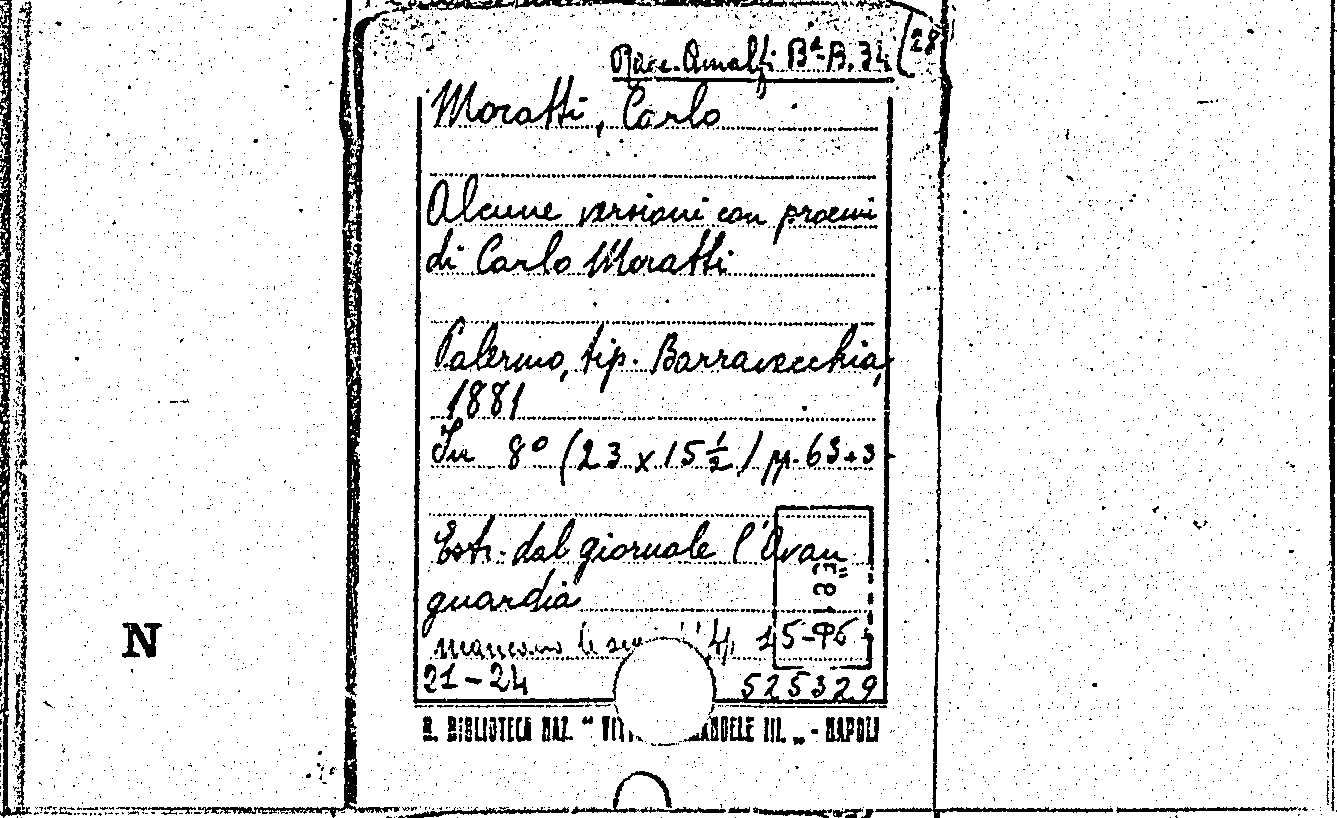 Race. Amalfi Bª-B. 34 (28
Moratti, Carlo
Alcune versioni con proemi
di Carlo Moratti
Palermo, tip. Barravecchia,
1881
In 8º (23 x 15 ½) pp. 63+3
Estr. dal giornale l'Avan
guardia
mancano le 4, 15-96
21-24 525329
R. BIBLIOTECA NAZ. " VITT ANUELE III. „ - NAPOLI
N